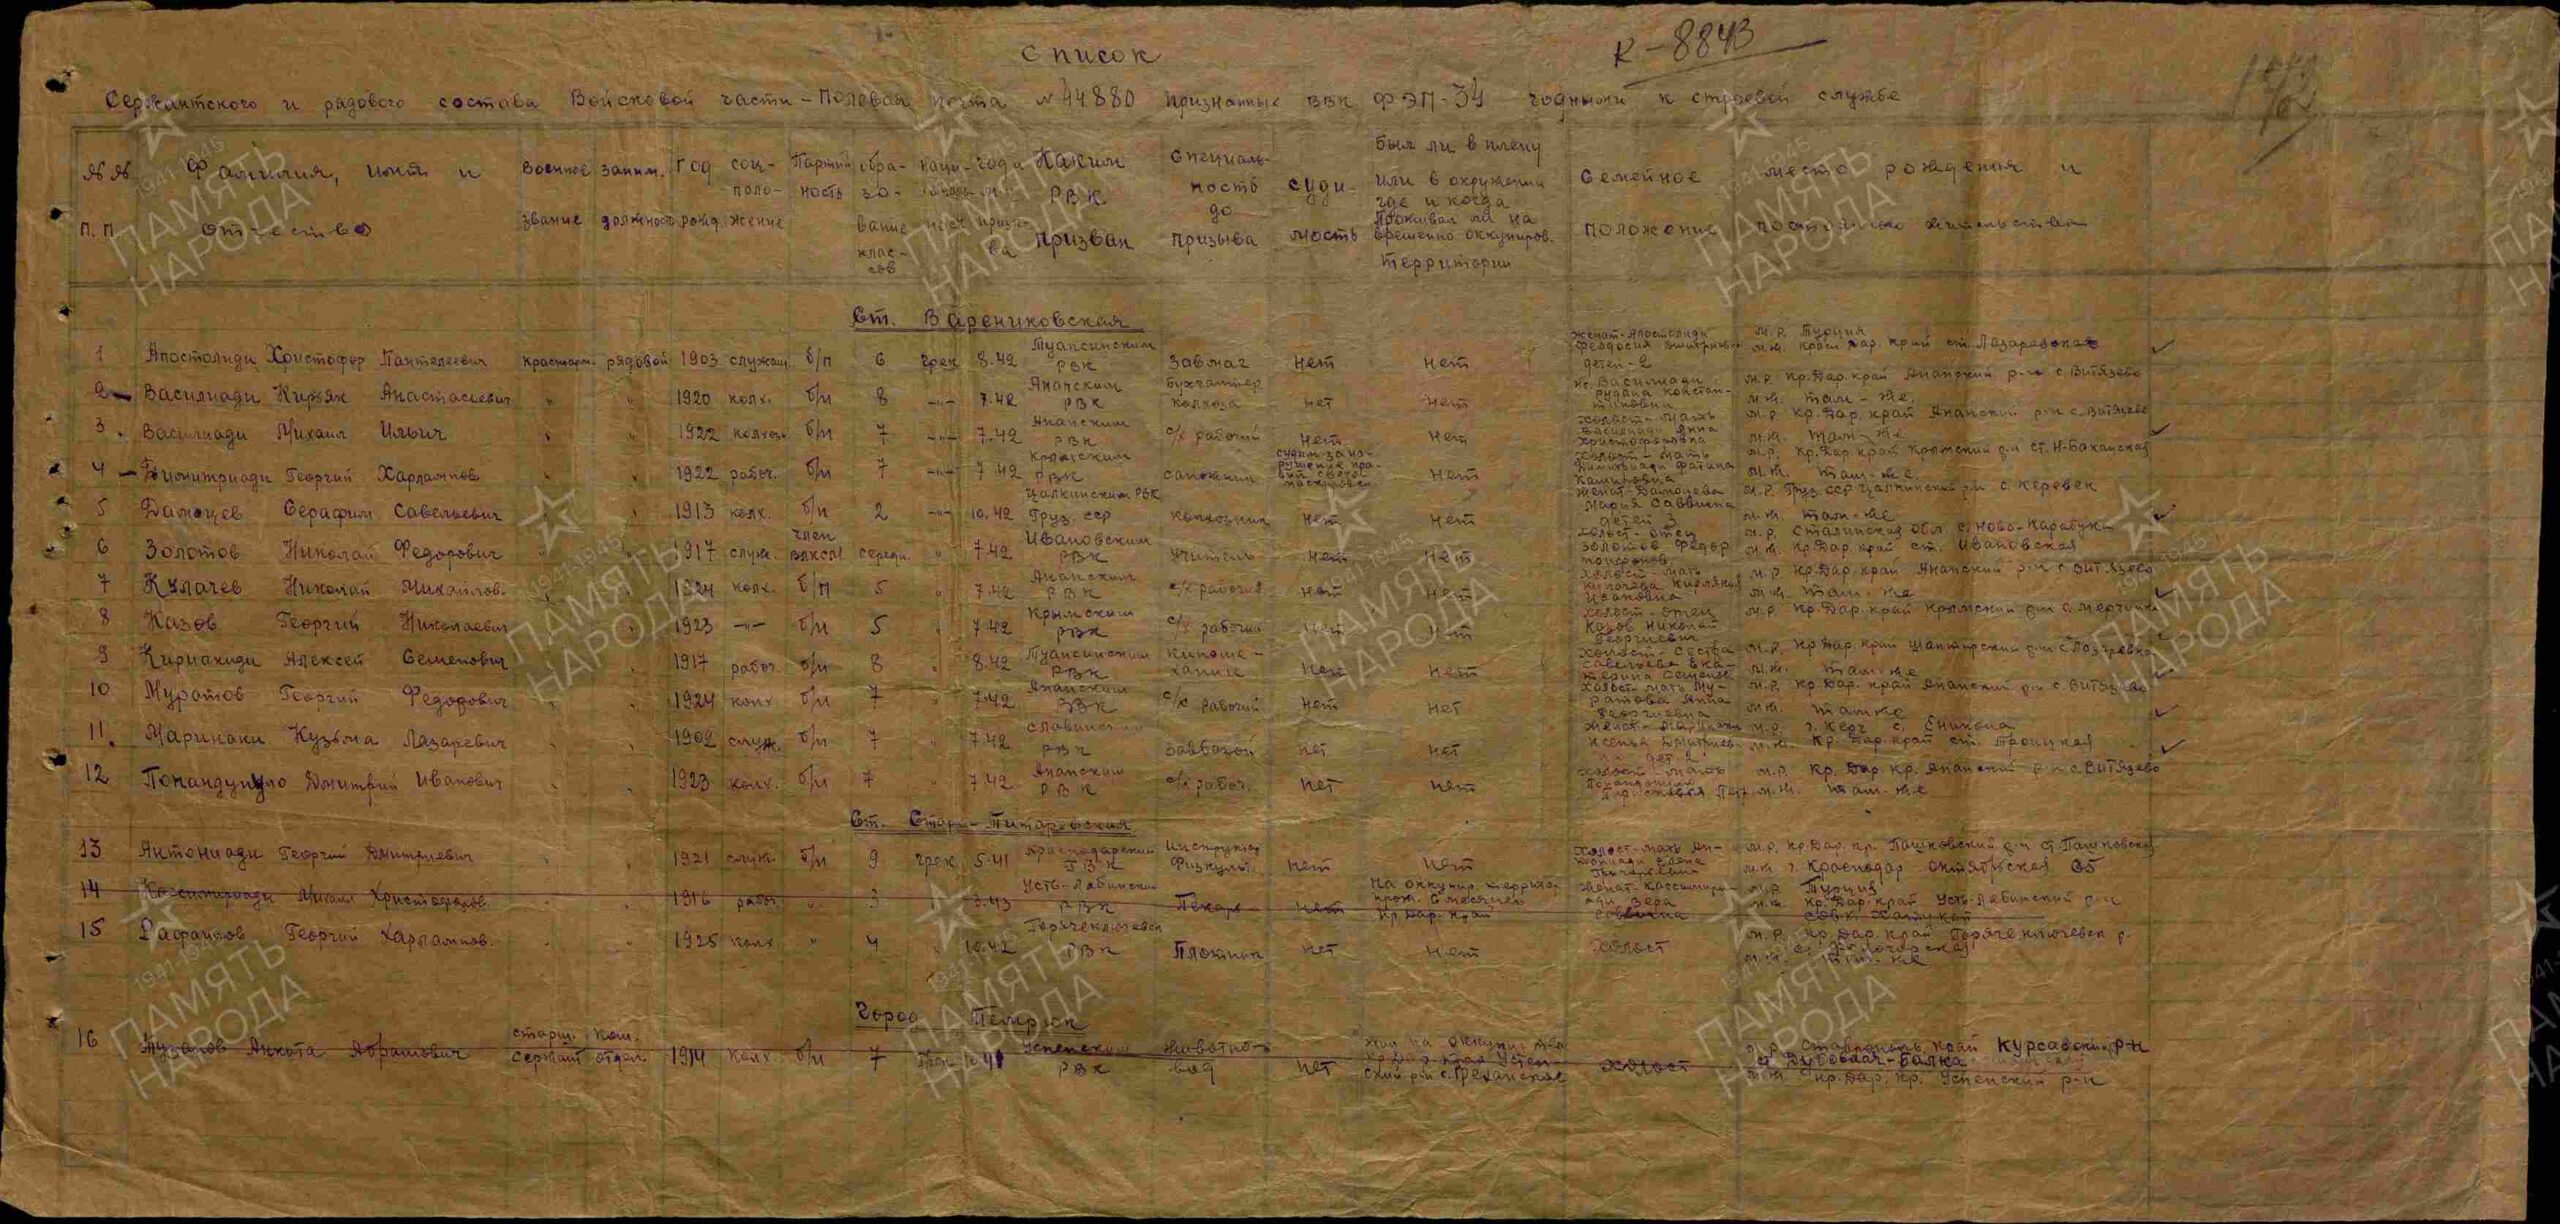 Список
К-8843
Сержантского и рядового состава Войсковой части - Полевая почта № 44880 признанные ВВК ФЭП-34 годными к строевой службе
№№ п.п Фамилия, имя и отчество Военное звание заним. должность год рожд. соц-положение Партийность образование классов национ. года призыва Каким РВК призван Специальность до призыва судимость Был ли в плену или в окружении где и когда Проживал ли на временно оккупиров. территории Семейное положение место рождения и постоянного жительства
Ст. Варениковская
1 Апостолиди Христофор Пантелеевич красноарм. рядовой 1903 служащ. б/п 6 грек 8.42 Туапсинским РВК Завмаг нет нет женат-Апостолиди Феодосия детей-2 м.р. Турция м.ж. Красн. дар. край ст. Лазаревская
2 Василиади Кирьяк Анастасьевич " " 1920 колх. б/п 8 -"- 7.42 Анапским РВК бухгалтер колхоза нет нет м.р. Кр.Дар. край Анапский р-н с. Витязево м.ж. там-же.
3. Василиади Михаил Ильич " " 1922 колхоз. б/п 7 -"- 7.42 Анапским РВК с/х рабочий нет нет холост-мать Василиади Анна Христофоровна м.р. Кр.Дар. край Анапский р-н с. Витязево м.ж. там-же
4 Димитриади Георгий Харлампов. " " 1922 рабоч. б/п 7 -"- 7.42 Крымским РВК сапожник нет холост-мать Димитриади м.р. Кр.Дар край Крымский р-н ст. Н-Баканская м.ж. там-же.
5 Дамоцев Серафим Савельевич " " 1913 колх. б/п 2 -"- 10.42 Цалкинским РВК Груз. сср колхозник нет нет женат-Дамоцева Мария Саввична детей 3 м.р. Груз. сср Цалкинский р-н с. Керевек м.ж. там-же
6 Золотов Николай Федорович " " 1917 служ. член ВЛКСМ средн. " 7.42 Ивановским РВК учитель нет нет холост-отец Золотов Федор м.р. Сталинская обл. с. Ново-Каракуба м.ж. Кр.Дар. край ст. Ивановская
7 Кулачев Николай Михайлов. " " 1924 колх. б/п 5 " 7.42 Анапским РВК с/х рабочий нет нет холост-мать м.р. Кр.Дар. край Анапский р-н с. Витязево м.ж. там-же
8 Казов Георгий Николаевич " " 1923 -"- б/п 5 " 7.42 Крымским РВК с/х рабочий нет нет холост-отец Казов Николай Георгиевич м.р. Кр.Дар. край Крымский р-н
9 Кириакиди Алексей Семенович " " 1917 рабоч. б/п 8 " 8.42 Туапсинским РВК киномеханик нет нет холост-сестра Савельева Екатерина м.р. Кр.Дар. край м.ж. там-же
10 Муратов Георгий Федорович " " 1924 колх б/п 7 " 7.42 Анапским РВК с/х рабочий нет нет холост-мать Муратова Анна Георгиевна м.р. Кр.Дар. край Анапский р-н с. Витязево м.ж. там же
11. Маринаки Кузьма Лазаревич " " 1902 служ. б/п 7 " 7.42 Славянским РВК завбазой нет нет женат-Маринаки Ксенья Дмитриев. дет. 2 м.р. г. Керч с. Еникола м.ж. Кр. Дар. край ст. Троицкая
12 Попандупуло Дмитрий Иванович " " 1923 колх. б/п 7 " 7.42 Анапским РВК с/х рабоч. нет нет холост-мать м.р. Кр. Дар. кр. Анапский р-н с. Витязево м.ж. там-же
Ст. Старо-Титаревская
13 Антониади Георгий Дмитриевич " " 1921 служ. б/п 9 грек 5.41 Краснодарским ГВК Инструктор Физкульт. нет нет холост-мать Антониади Елена м.р. Кр.Дар. кр. Пашковский р-н ст. Пашковская м.ж. г. Краснодар Октябрьская 65
14 Кассимириади Михаил Христофоров. " " 1916 рабоч. " 3 " 3.43 Усть-Лабинским РВК Пекарь нет На оккупир. территор. прож. 6 месяцев Кр.Дар. край женат-Вера Саввична м.р. Турция м.ж. Кр.Дар. край Усть-Лабинский р-н совх.
15 Рафаилов Георгий Харлампов. " " 1925 колх. " 4 " 10.42 Горячеключевск РВК Плотник нет нет холост м.р. Кр.Дар. край Горячеключевск р. м.ж. там-же
Город Темрюк
16 Анкота Абрамович старш. сержант ком. отдел. 1914 колх б/п 7 грек 10.41 Успенским РВК животновод нет холост м.р. Ставрополь. край Курсавский р-н с. Дубовая-Балка м.ж. Кр.Дар. кр. Успенский р-н
ПАМЯТЬ НАРОДА
1941-1945